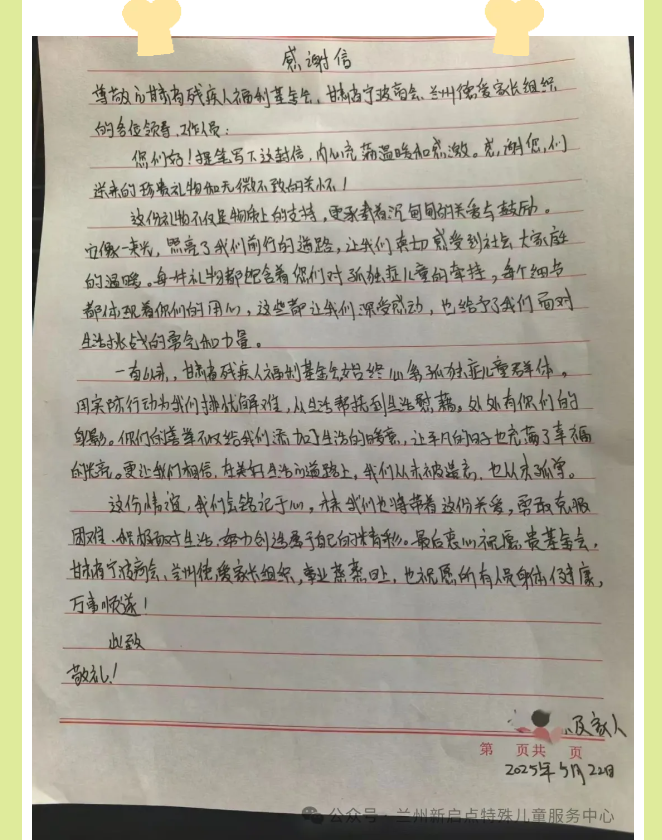 感谢信
尊敬的甘肃省残疾人福利基金会、甘肃省宁波商会、兰州德爱家长组织
的各位领导、工作人员：
您们好！提笔写下这封信，内心充满温暖和感激。感谢您们
送来的珍贵礼物和无微不致的关怀！
这份礼物不仅是物质上的支持，更承载着沉甸甸的关爱与鼓励。
它像一束光，照亮了我们前行的道路，让我们真切感受到社会大家庭
的温暖。每件礼物都饱含着你们对孤独症儿童的牵挂，每个细节
都体现着你们的用心，这些都让我们深受感动，也给予了我们面对
生活挑战的勇气和力量。
一直以来，甘肃省残疾人福利基金会始终心系孤独症儿童群体。
用实际行动为我们排忧解难，从生活帮扶到生活慰藉。处处有你们的
身影。你们的善举不仅给我们添加了生活的暖意，让平凡的日子也充满了幸福
的光亮。更让我们相信，在美好生活的道路上，我们从未被遗忘，也从未孤单。
这份情谊，我们会铭记于心，未来我们也将带着这份关爱，勇敢克服
困难、积极面对生活，努力创造属于自己的精彩。最后衷心祝愿贵基金会、
甘肃省宁波商会、兰州德爱家长组织，事业蒸蒸日上，也祝愿所有人员身体健康，
万事顺遂！
此致
敬礼！
及家人
第 页共 页
2025年5月22日
公众号·兰州新启点特殊儿童服务中心